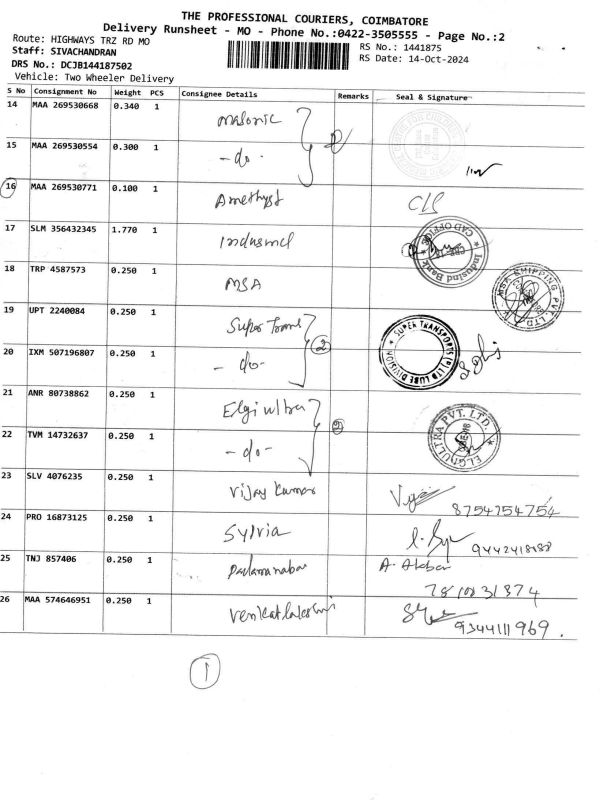 THE PROFESSIONAL COURIERS, COIMBATORE
Delivery Runsheet - MO - Phone No.:0422-3505555 - Page No.:2
Route: HIGHWAYS TRZ RD MO
RS No.: 1441875
Staff: SIVACHANDRAN
RS Date: 14-Oct-2024
DRS No.: DCJB144187502
Vehicle: Two Wheeler Delivery
S No Consignment No Weight PCS Consignee Details Remarks Seal & Signature
14 MAA 269530668 0.340 1 Masonic
15 MAA 269530554 0.300 1 -do-
16 MAA 269530771 0.100 1 Amethyst
17 SLM 356432345 1.770 1 Indusind
Indusind Bank CAD OFFICE
18 TRP 4587573 0.250 1 MSA
MSA SHIPPING PVT. LTD.
19 UPT 2240084 0.250 1 Super Trans
20 IXM 507196807 0.250 1 -do- 2
SUPER TRANSPORTS (P) LTD LUBE DIVISION
21 ANR 80738862 0.250 1 Elgi ultra
22 TVM 14732637 0.250 1 -do- 2
ELGI ULTRA PVT. LTD.
23 SLV 4076235 0.250 1 Vijay Kumar
8754754754
24 PRO 16873125 0.250 1 Sylvia
25 TNJ 857406 0.250 1 Padamanaban A. Akbar
26 MAA 574646951 0.250 1 Venkatlakshmi
9344111969.
1